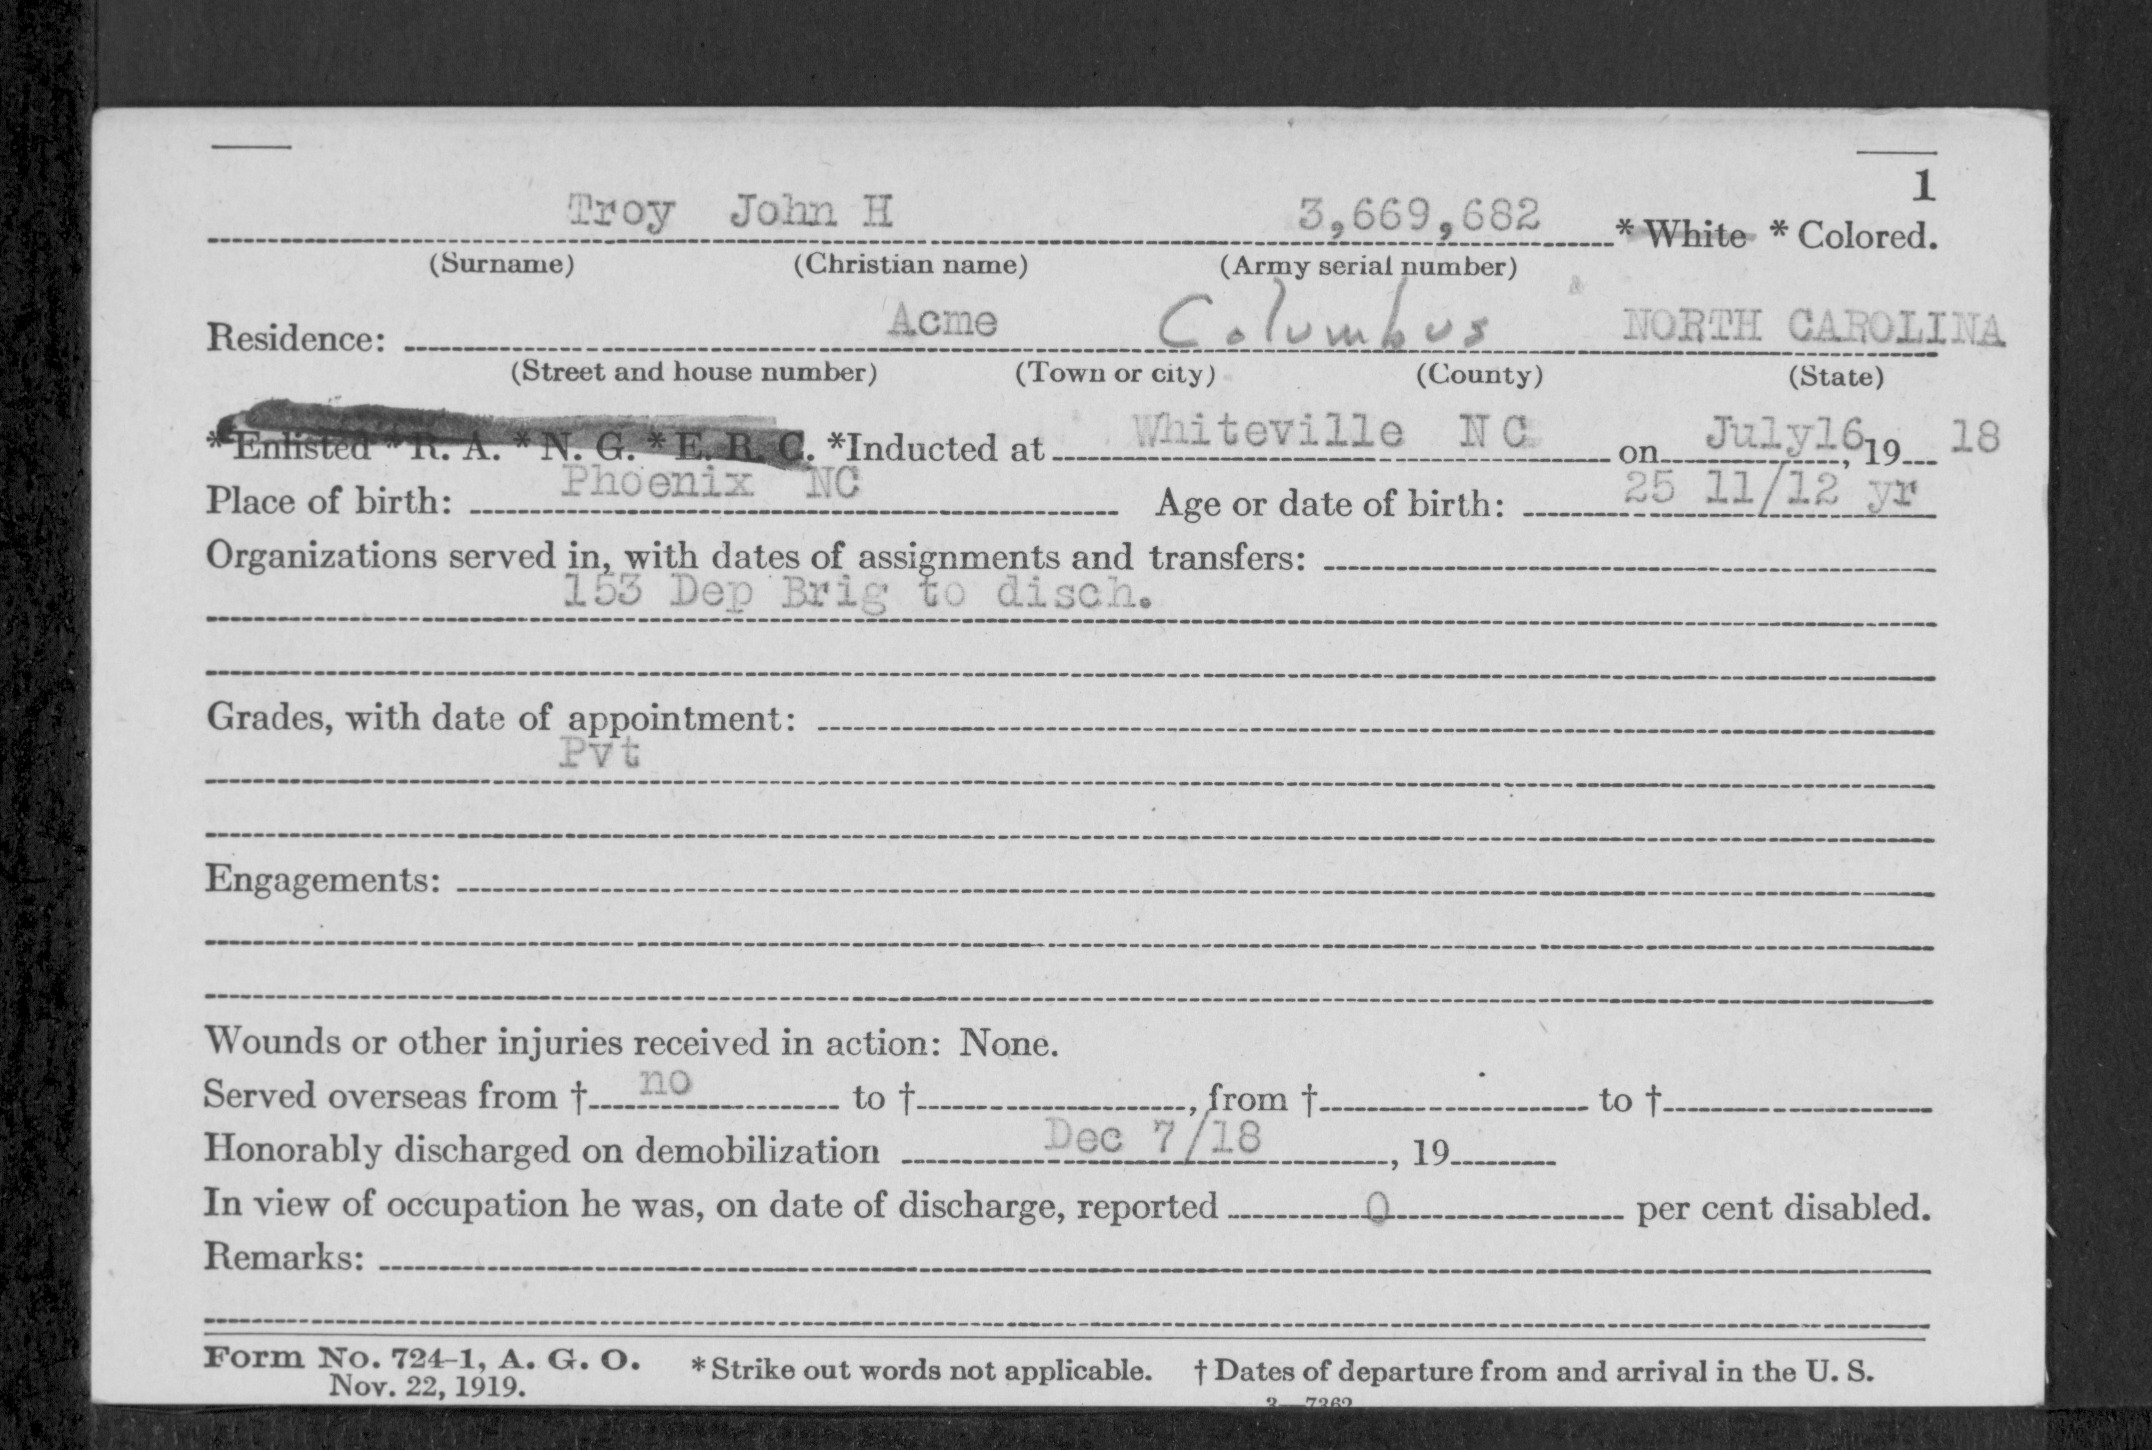 1
Troy John H 3,669,682 * White * Colored.
(Surname) (Christian name) (Army serial number)
Residence: Acme Columbus NORTH CAROLINA
(Street and house number) (Town or city) (County) (State)
* Enlisted * R. A. * N. G. * E. R. C. *Inducted at Whiteville N C on July16, 19 18
Place of birth: Phoenix NC Age or date of birth: 25 11/12 yr
Organizations served in, with dates of assignments and transfers:
153 Dep Brig to disch.
Grades, with date of appointment:
Pvt
Engagements:
Wounds or other injuries received in action: None.
Served overseas from † no to †, from † to †
Honorably discharged on demobilization Dec 7/18, 19
In view of occupation he was, on date of discharge, reported 0 per cent disabled.
Remarks:
Form No. 724-1, A. G. O. * Strike out words not applicable. † Dates of departure from and arrival in the U. S.
Nov. 22, 1919.
3—7362